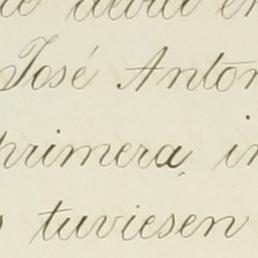 debió en
José Anton
primera in
tuviesen